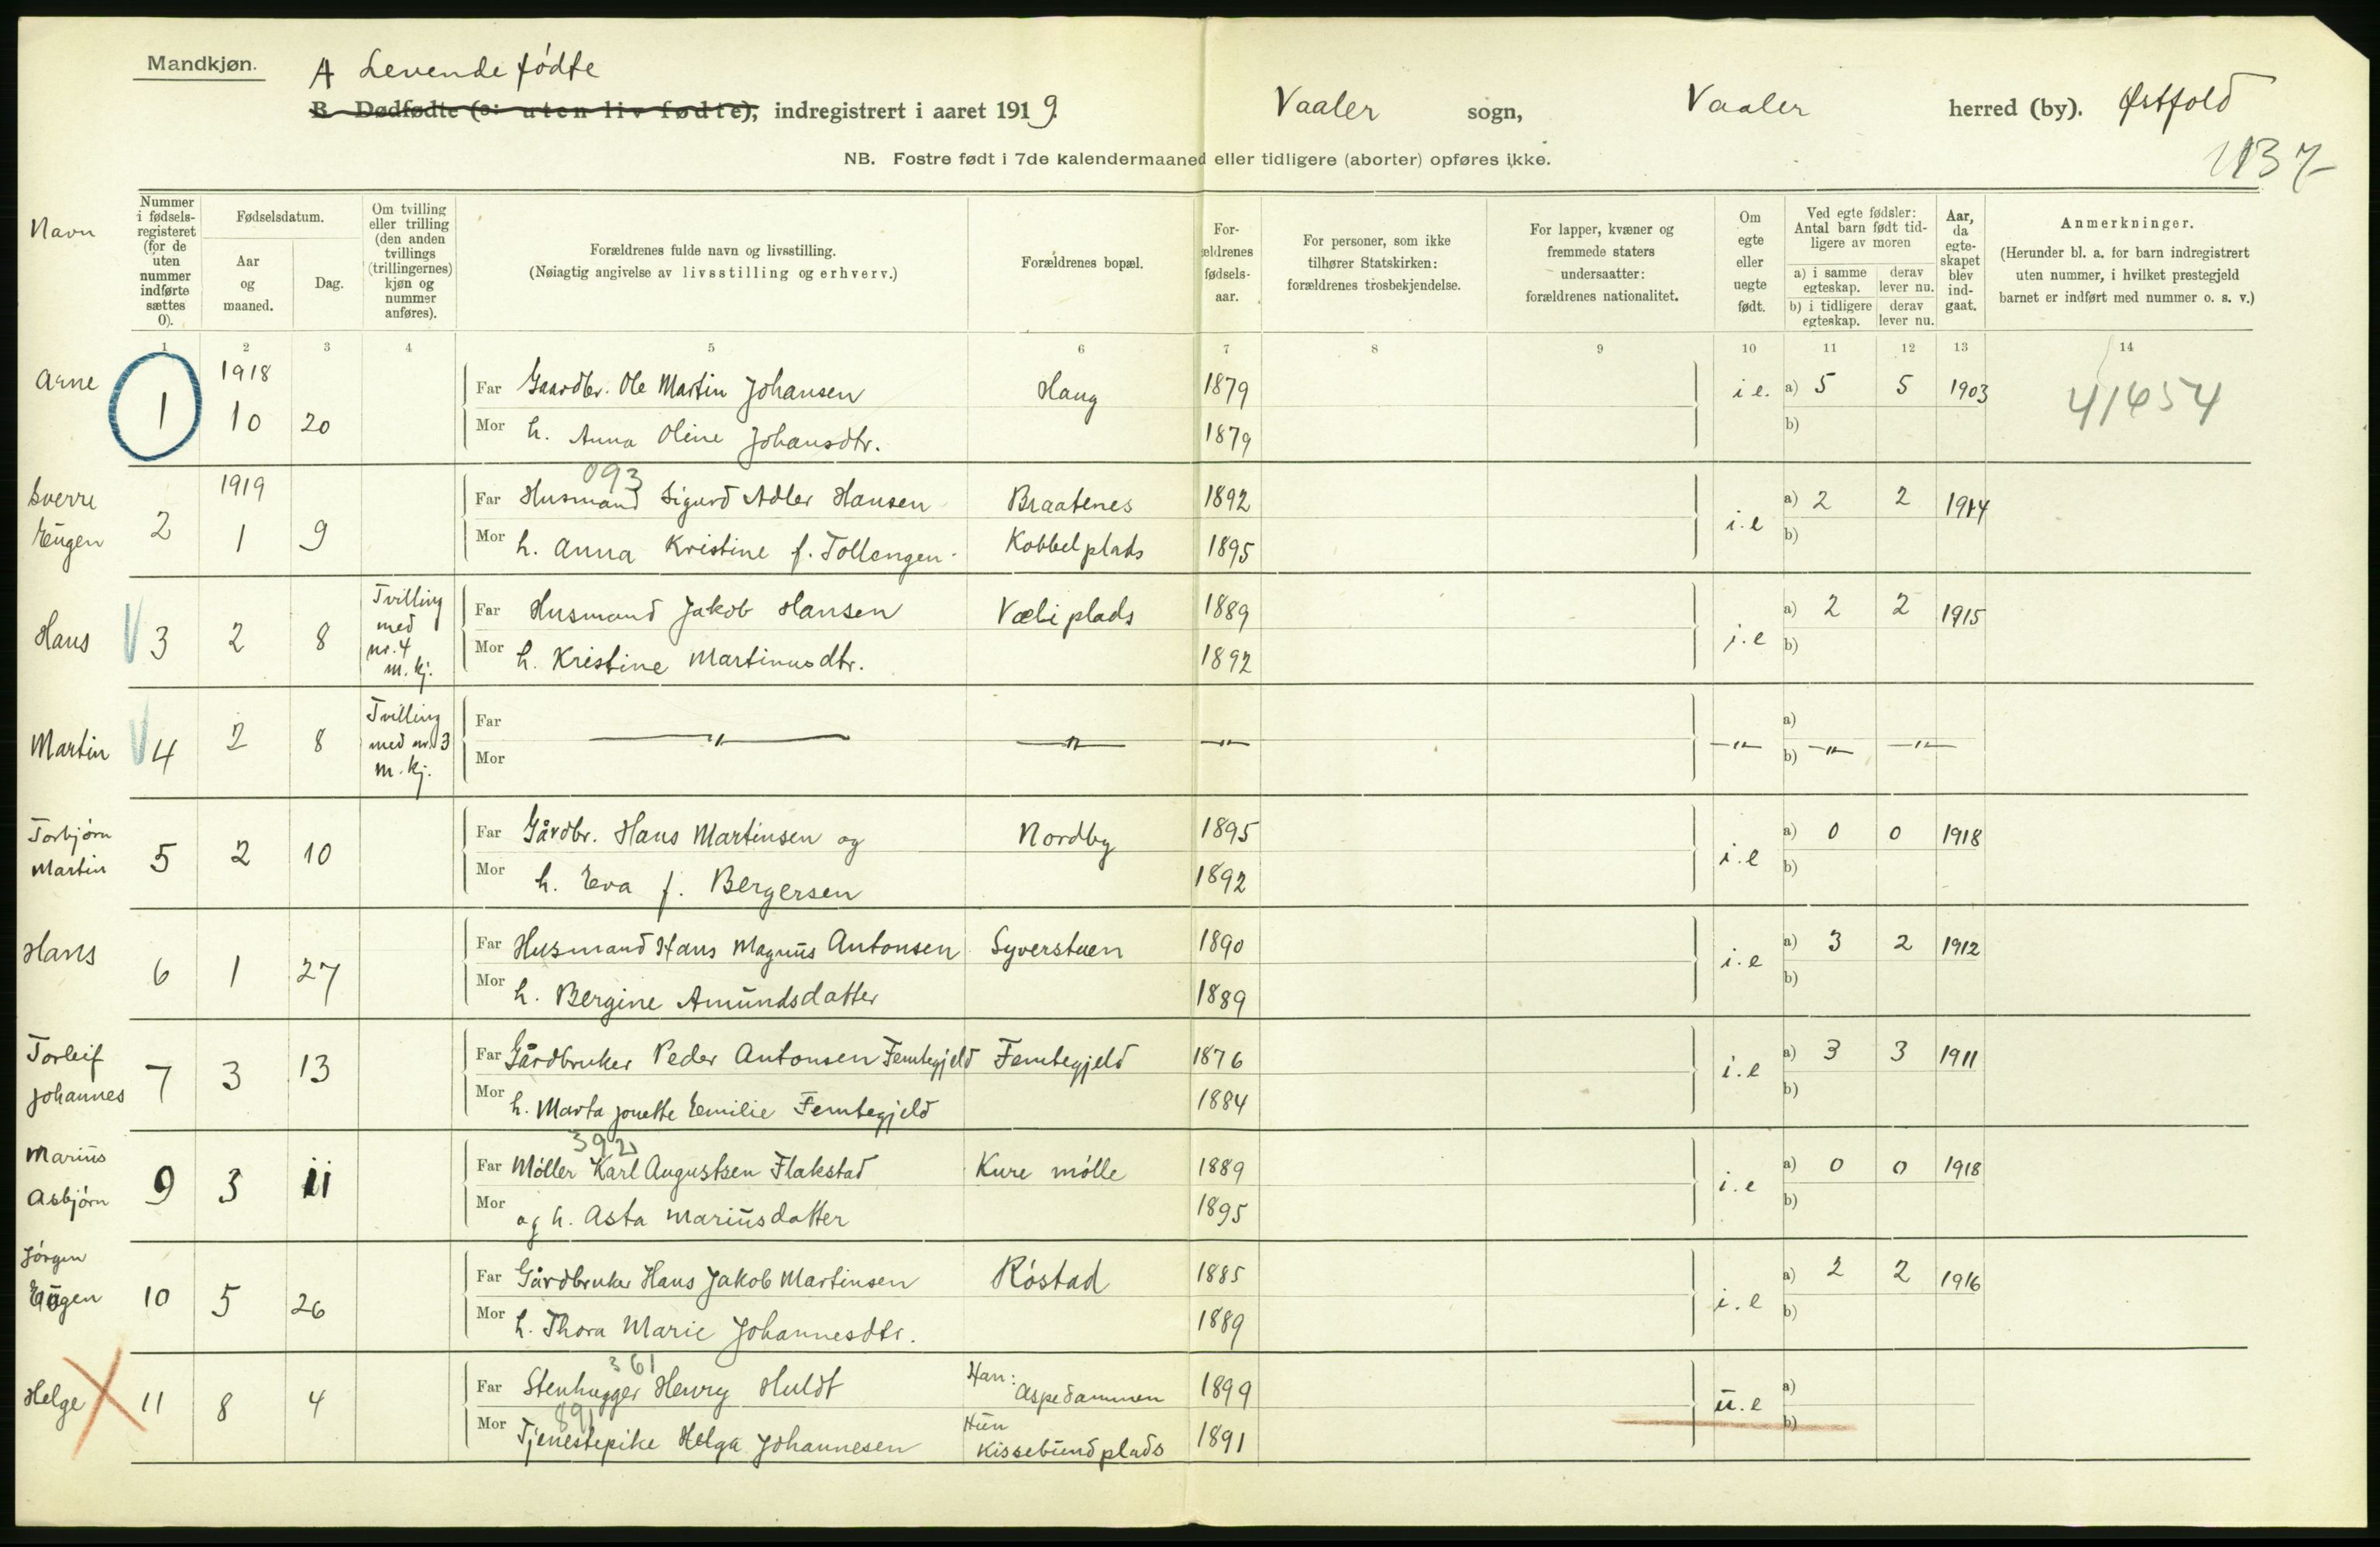 Mandkjøn.
A Levende fødte
B. Dødfødte (ɔ: uten liv fødte), indregistrert i aaret 1919. Vaaler sogn, Vaaler herred (by). Østfold
NB. Fostre født i 7de kalendermaaned eller tidligere (aborter) opføres ikke.
Navn
Nummer i fødselsregisteret (for de uten nummer indførte sættes 0).
Fødselsdatum.
Aar og maaned.
Dag.
Om tvilling eller trilling (den anden tvillings (trillingernes) kjøn og nummer anføres).
Forældrenes fulde navn og livsstilling.
(Nøiagtig angivelse av livsstilling og erhverv.)
Forældrenes bopæl.
Forældrenes fødselsaar.
For personer, som ikke tilhører Statskirken: forældrenes trosbekjendelse.
For lapper, kvæner og fremmede staters undersaatter: forældrenes nationalitet.
Om egte eller uegte født.
Ved egte fødsler: Antal barn født tidligere av moren
a) i samme egteskap. derav lever nu.
b) i tidligere egteskap. derav lever nu.
Aar, da egteskapet blev indgaat.
Anmerkninger.
(Herunder bl. a. for barn indregistrert uten nummer, i hvilket prestegjeld barnet er indført med nummer o. s. v.)
1 2 3 4 5 6 7 8 9 10 11 12 13 14
1918
Arne 1 10 20 Far Gaardbr. Ole Martin Johansen Haug 1879 i e. a) 5 5 1903 41454
Mor h. Anna Oline Johansdtr. 1879 b)
093
1919
Sverre Eugen 2 1 9 Far Husmand Sigurd Adler Hansen Braatenes 1892 i.e a) 2 2 1914
Mor h. Anna Kristine f. Tollengen. Kobbelplads 1895 b)
Hans 3 2 8 Tvilling med nr. 4 m. kj. Far Husmand Jakob Hansen Væliplads 1889 i.e a) 2 2 1915
Mor h. Kristine Martinusdtr. 1892 b)
Martin 4 2 8 Tvilling med nr. 3 m. kj. Far —"— —"— —"— —"— a)
Mor b) —"— —"—
Torbjørn Martin 5 2 10 Far Gårdbr. Hans Martinsen og Nordby 1895 i.e a) 0 0 1918
Mor h. Eva f. Bergersen 1892 b)
Hans 6 1 27 Far Husmand Hans Magnus Antonsen Syverstuen 1890 i.e a) 3 2 1912
Mor h. Bergine Amundsdatter 1889 b)
Torleif Johannes 7 3 13 Far Gårdbruker Peder Antonsen Femtegjeld Femtegjeld 1876 i.e a) 3 3 1911
Mor h. Marta Jonette Emilie Femtegjeld 1884 b)
392
Marius Asbjørn 9 3 11 Far Møller Karl Augustsen Flakstad Kure mølle 1889 i.e a) 0 0 1918
Mor og h. Asta Mariusdatter 1895 b)
Jörgen Eugen 10 5 26 Far Gårdbruker Hans Jakob Martinsen Röstad 1885 i.e a) 2 2 1916
Mor h. Thora Marie Johannesdtr. 1889 b)
361
Helge 11 8 4 Far Stenhugger Henry Huldt Han: Aspedammen 1899 u.e a)
891
Mor Tjenestepike Helga Johannesen Hun Kissebundplads 1891 b)